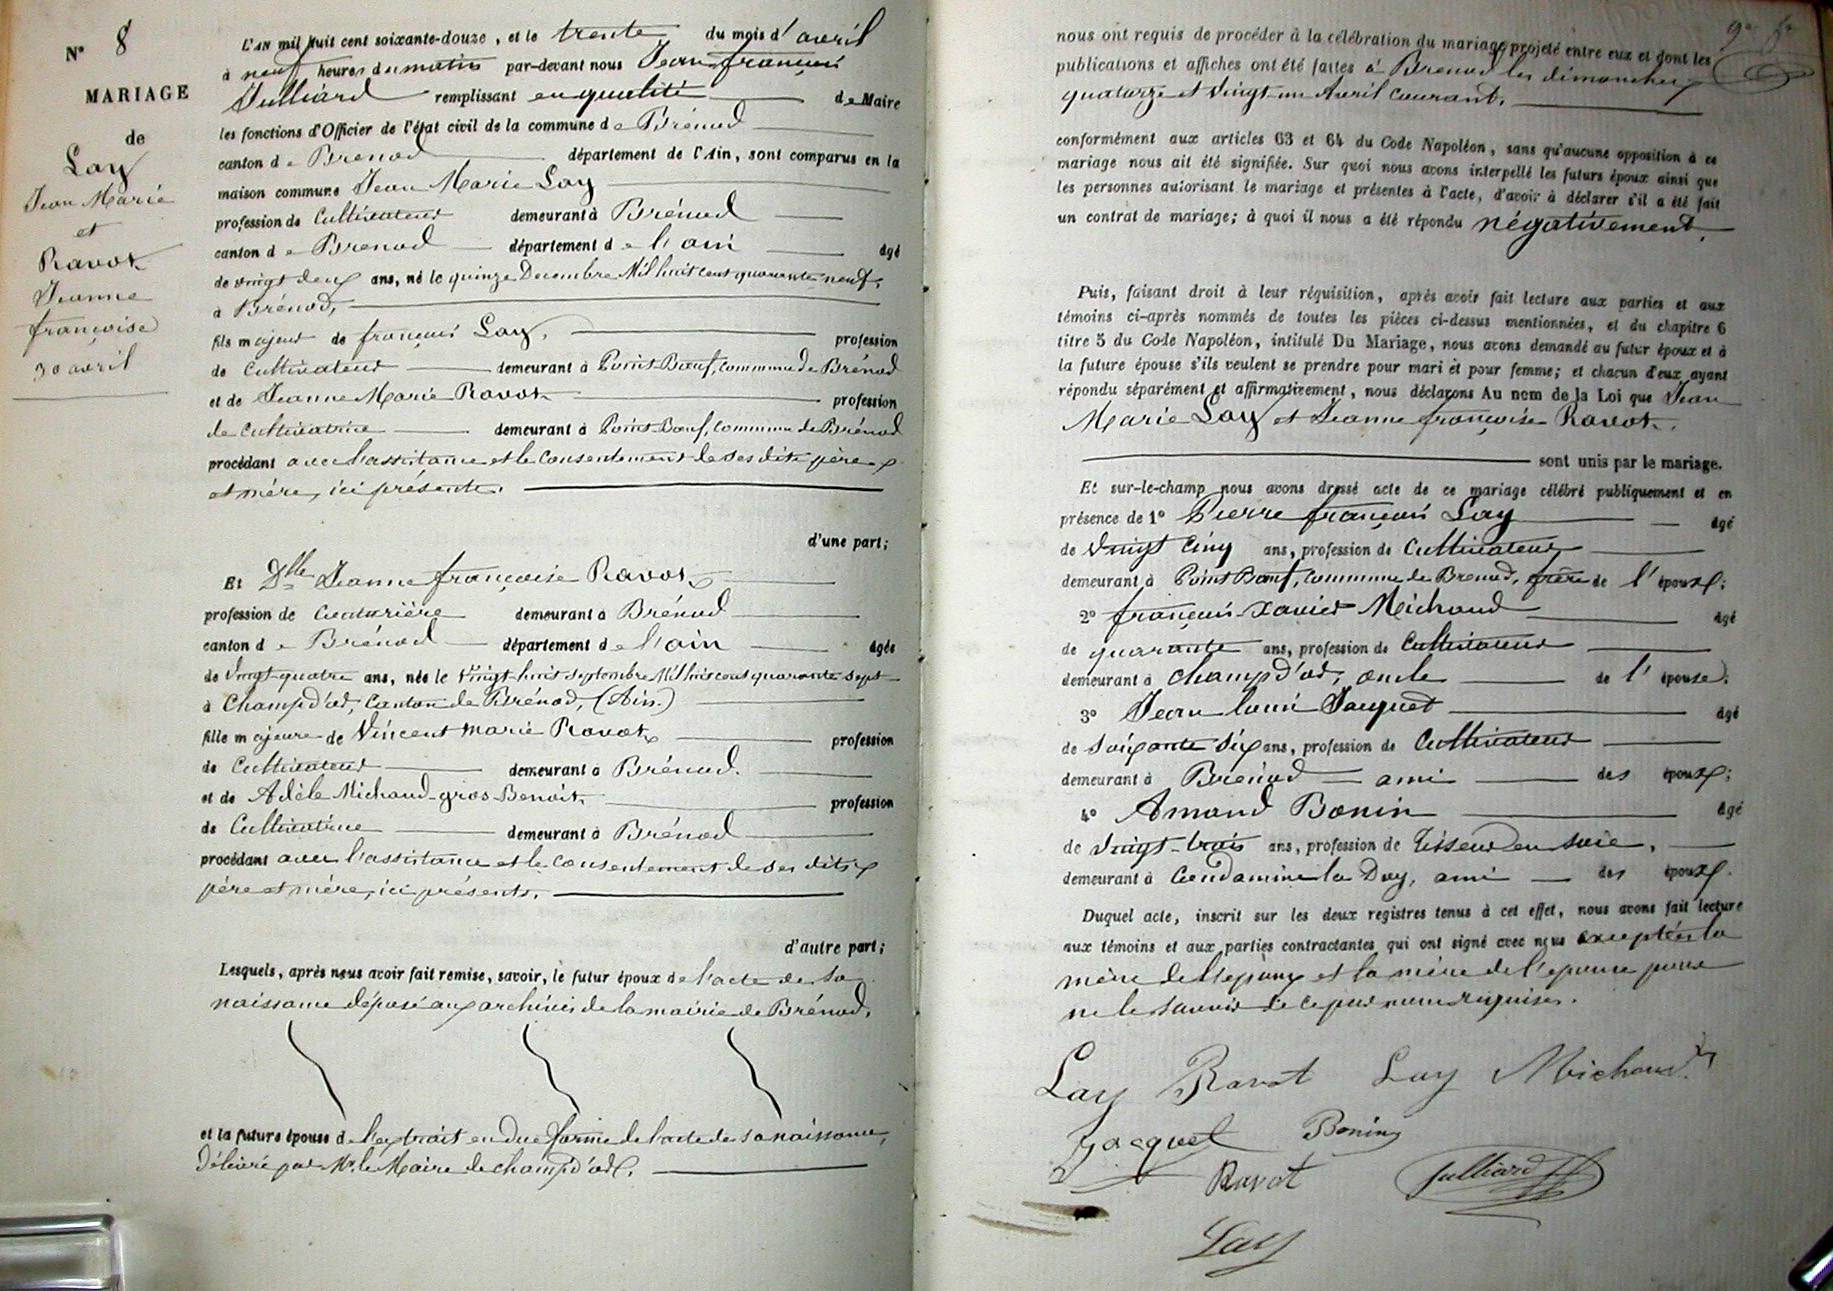 N° 8
MARIAGE
de
Lay
Jean Marie
et
Ravot
Jeanne
françoise
30 avril
L'AN mil huit cent soixante-douze, et le trente du mois d'avril
à neuf heures du matin par-devant nous Jean françois
Julliard remplissant en qualité de Maire
les fonctions d'Officier de l'état civil de la commune de Brénod
canton de Brenod département de l'Ain, sont comparus en la
maison commune Jean Marie Lay
profession de Cultivateur demeurant à Brénod
canton de Brenod département de l'ain âgé
de vingt deux ans, né le quinze Decembre Mil huit cent quarante neuf,
à Brénod,
fils majeur de françois Lay, profession
de Cultivateur demeurant à Point Bœuf, commune de Brénod
et de Jeanne Marie Ravot profession
de Cultivatrice demeurant à Point-Bœuf, commune de Brénod
procédant avec l'assistance et le consentement de ses dits père
et mère, ici présents.
d'une part;
Et Dlle Jeanne françoise Ravot
profession de Couturière demeurant à Brénod
canton de Brénod département de l'ain âgée
de vingt-quatre ans, née le vingt huit septembre Mil huit cent quarante sept
à Champd'or, Canton de Brénod, (Ain.)
fille majeure de Vincent Marie Ravot profession
de Cultivateur demeurant à Brénod.
et de Adèle Michaud-gros-Benoit, profession
de Cultivatrice demeurant à Brénod
procédant avec l'assistance et le consentement de ses dits
père et mère, ici présents.
d'autre part;
Lesquels, après nous avoir fait remise, savoir, le futur époux de l'acte de sa
naissance déposé aux archives de la mairie de Brénod,
et la future épouse de l'extrait en due forme de l'acte de sa naissance,
délivré par Mr. le Maire de champd'or.
nous ont requis de procéder à la célébration du mariage projeté entre eux et dont les
publications et affiches ont été faites à Brenod les dimanches
quatorze et vingt-un Avril courant,
conformément aux articles 63 et 64 du Code Napoléon, sans qu'aucune opposition à ce
mariage nous ait été signifiée. Sur quoi nous avons interpellé les futurs époux ainsi que
les personnes autorisant le mariage et présentes à l'acte, d'avoir à déclarer s'il a été fait
un contrat de mariage; à quoi il nous a été répondu négativement.
Puis, faisant droit à leur réquisition, après avoir fait lecture aux parties et aux
témoins ci-après nommés de toutes les pièces ci-dessus mentionnées, et du chapitre 6
titre 5 du Code Napoléon, intitulé Du Mariage, nous avons demandé au futur époux et à
la future épouse s'ils veulent se prendre pour mari et pour femme; et chacun d'eux ayant
répondu séparément et affirmativement, nous déclarons Au nom de la Loi que Jean
Marie Lay et Jeanne françoise Ravot.
sont unis par le mariage.
Et sur-le-champ nous avons dressé acte de ce mariage célébré publiquement et en
présence de 1° Pierre françois Lay âgé
de vingt cinq ans, profession de Cultivateur
demeurant à Point Bœuf, commune de Brenod, frère de l'époux;
2° françois-xavier Michaud âgé
de quarante ans, profession de Cultivateur
demeurant à champd'or, oncle de l'épouse.
3° Jean louis Jacquet âgé
de soixante six ans, profession de Cultivateur
demeurant à Brénod ami des époux;
4° Amand Bonin âgé
de vingt-trois ans, profession de tisseur en soie,
demeurant à Condamine la Doy, ami des époux.
Duquel acte, inscrit sur les deux registres tenus à cet effet, nous avons fait lecture
aux témoins et aux parties contractantes qui ont signé avec nous exceptés la
mère de l'époux et la mère de l'epouse pour
ne le savoir de ce par nous requises.
Lay Ravot Lay Michaud
Jacquet Bonin
Ravot Julliard
Lay